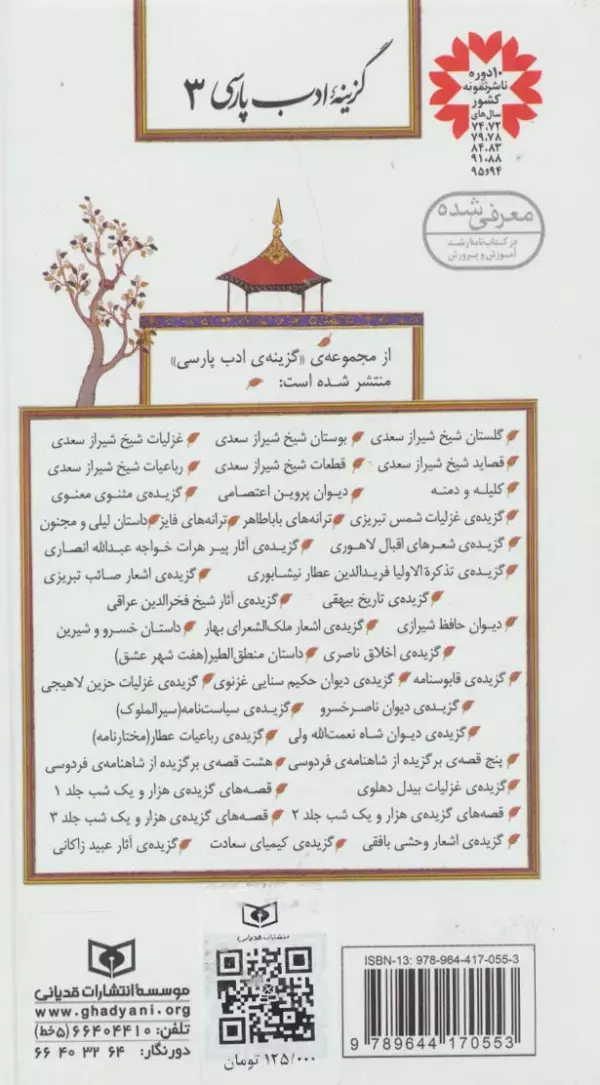 گزینهٔ ادب پارسی ۳
۱۰دوره
ناشر نمونه
کشور
سال‌های
۷۴،۷۲
۷۹،۷۸
۸۴،۸۳
۹۱،۸۸
۹۴و۹۵
معرفی شده
در کتاب نامهٔ رشد
آموزش و پرورش
از مجموعه‌ی «گزینه‌ی ادب پارسی»
منتشر شده است:
گلستان شیخ شیراز سعدی بوستان شیخ شیراز سعدی غزلیات شیخ شیراز سعدی
قصاید شیخ شیراز سعدی قطعات شیخ شیراز سعدی رباعیات شیخ شیراز سعدی
کلیله و دمنه دیوان پروین اعتصامی گزیده‌ی مثنوی معنوی
گزیده‌ی غزلیات شمس تبریزی ترانه‌های باباطاهر ترانه‌های فایز داستان لیلی و مجنون
گزیده‌ی شعرهای اقبال لاهوری گزیده‌ی آثار پیر هرات خواجه عبدالله انصاری
گزیده‌ی تذکرة الاولیا فریدالدین عطار نیشابوری گزیده‌ی اشعار صائب تبریزی
گزیده‌ی تاریخ بیهقی گزیده‌ی آثار شیخ فخرالدین عراقی
دیوان حافظ شیرازی گزیده‌ی اشعار ملک‌الشعرای بهار داستان خسرو و شیرین
گزیده‌ی اخلاق ناصری داستان منطق‌الطیر(هفت شهر عشق)
گزیده‌ی قابوسنامه گزیده‌ی دیوان حکیم سنایی غزنوی گزیده‌ی غزلیات حزین لاهیجی
گزیده‌ی دیوان ناصرخسرو گزیده‌ی سیاست‌نامه(سیرالملوک)
گزیده‌ی دیوان شاه نعمت‌الله ولی گزیده‌ی رباعیات عطار(مختارنامه)
پنج قصه‌ی برگزیده از شاهنامه‌ی فردوسی هشت قصه‌ی برگزیده از شاهنامه‌ی فردوسی
گزیده‌ی غزلیات بیدل دهلوی قصه‌های گزیده‌ی هزار و یک شب جلد ۱
قصه‌های گزیده‌ی هزار و یک شب جلد ۲ قصه‌های گزیده‌ی هزار و یک شب جلد ۳
گزیده‌ی اشعار وحشی بافقی گزیده‌ی کیمیای سعادت گزیده‌ی آثار عبید زاکانی
موسسه انتشارات قدیانی
www.ghadyani.org
تلفن: ۶۶۴۰۴۴۱۰ (۵خط)
دورنگار: ۶۶ ۴۰ ۳۲ ۶۴
انتشارات قدیانی
۱۲۵/۰۰۰ تومان
ISBN-13: 978-964-417-055-3
9 789644 170553